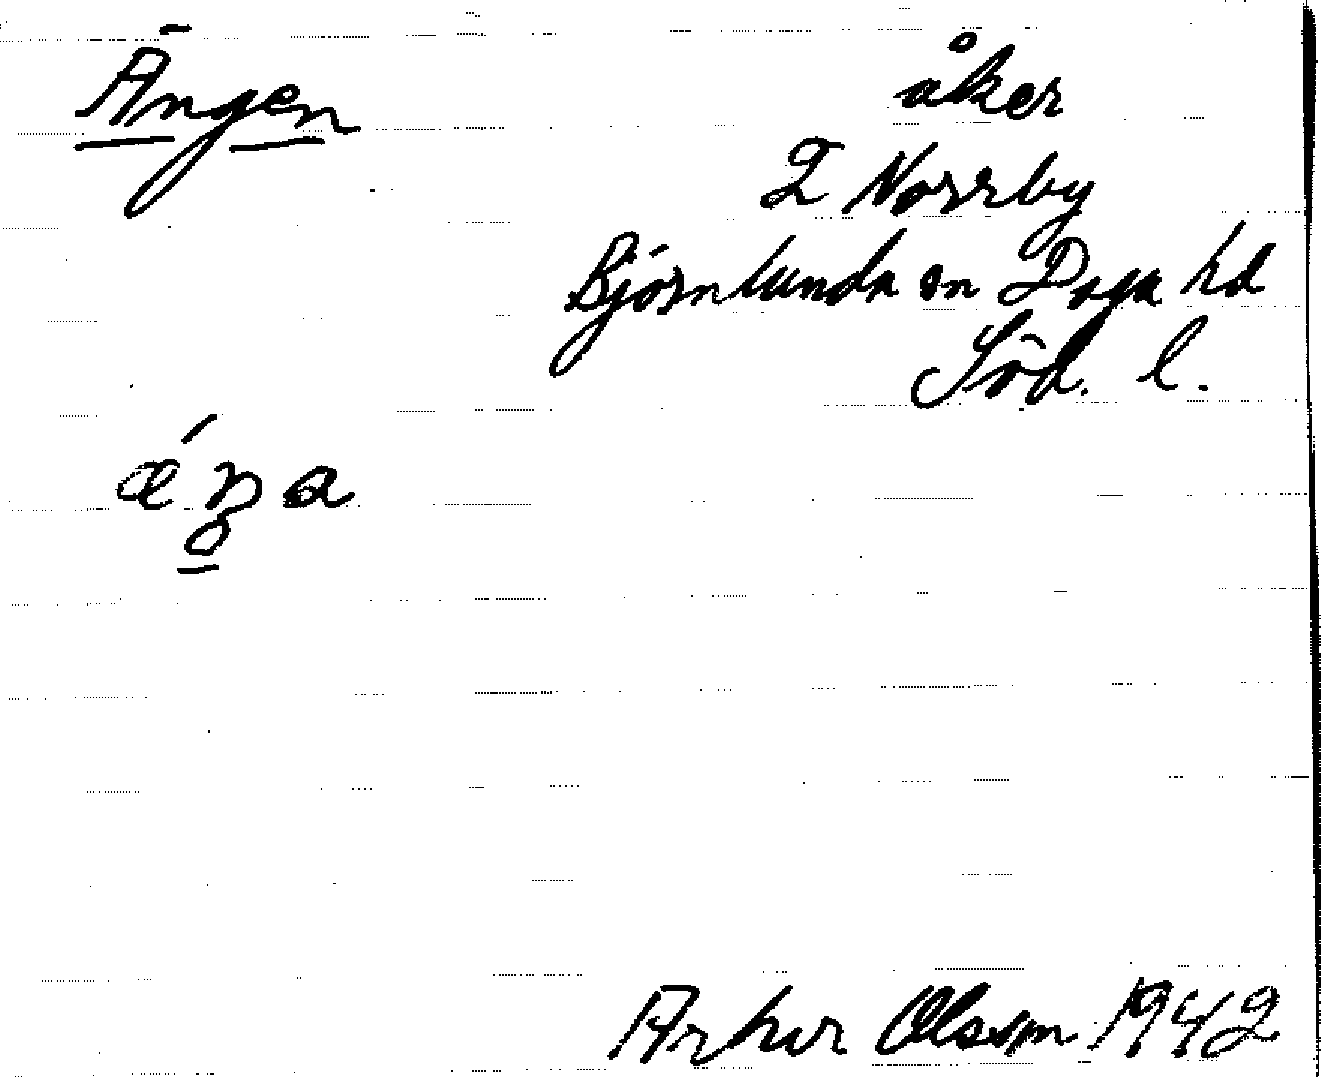 Ängen
åker
I Norrby
Björnlunda sn Daga hd
Söd. l.
Artur Olsson 1942